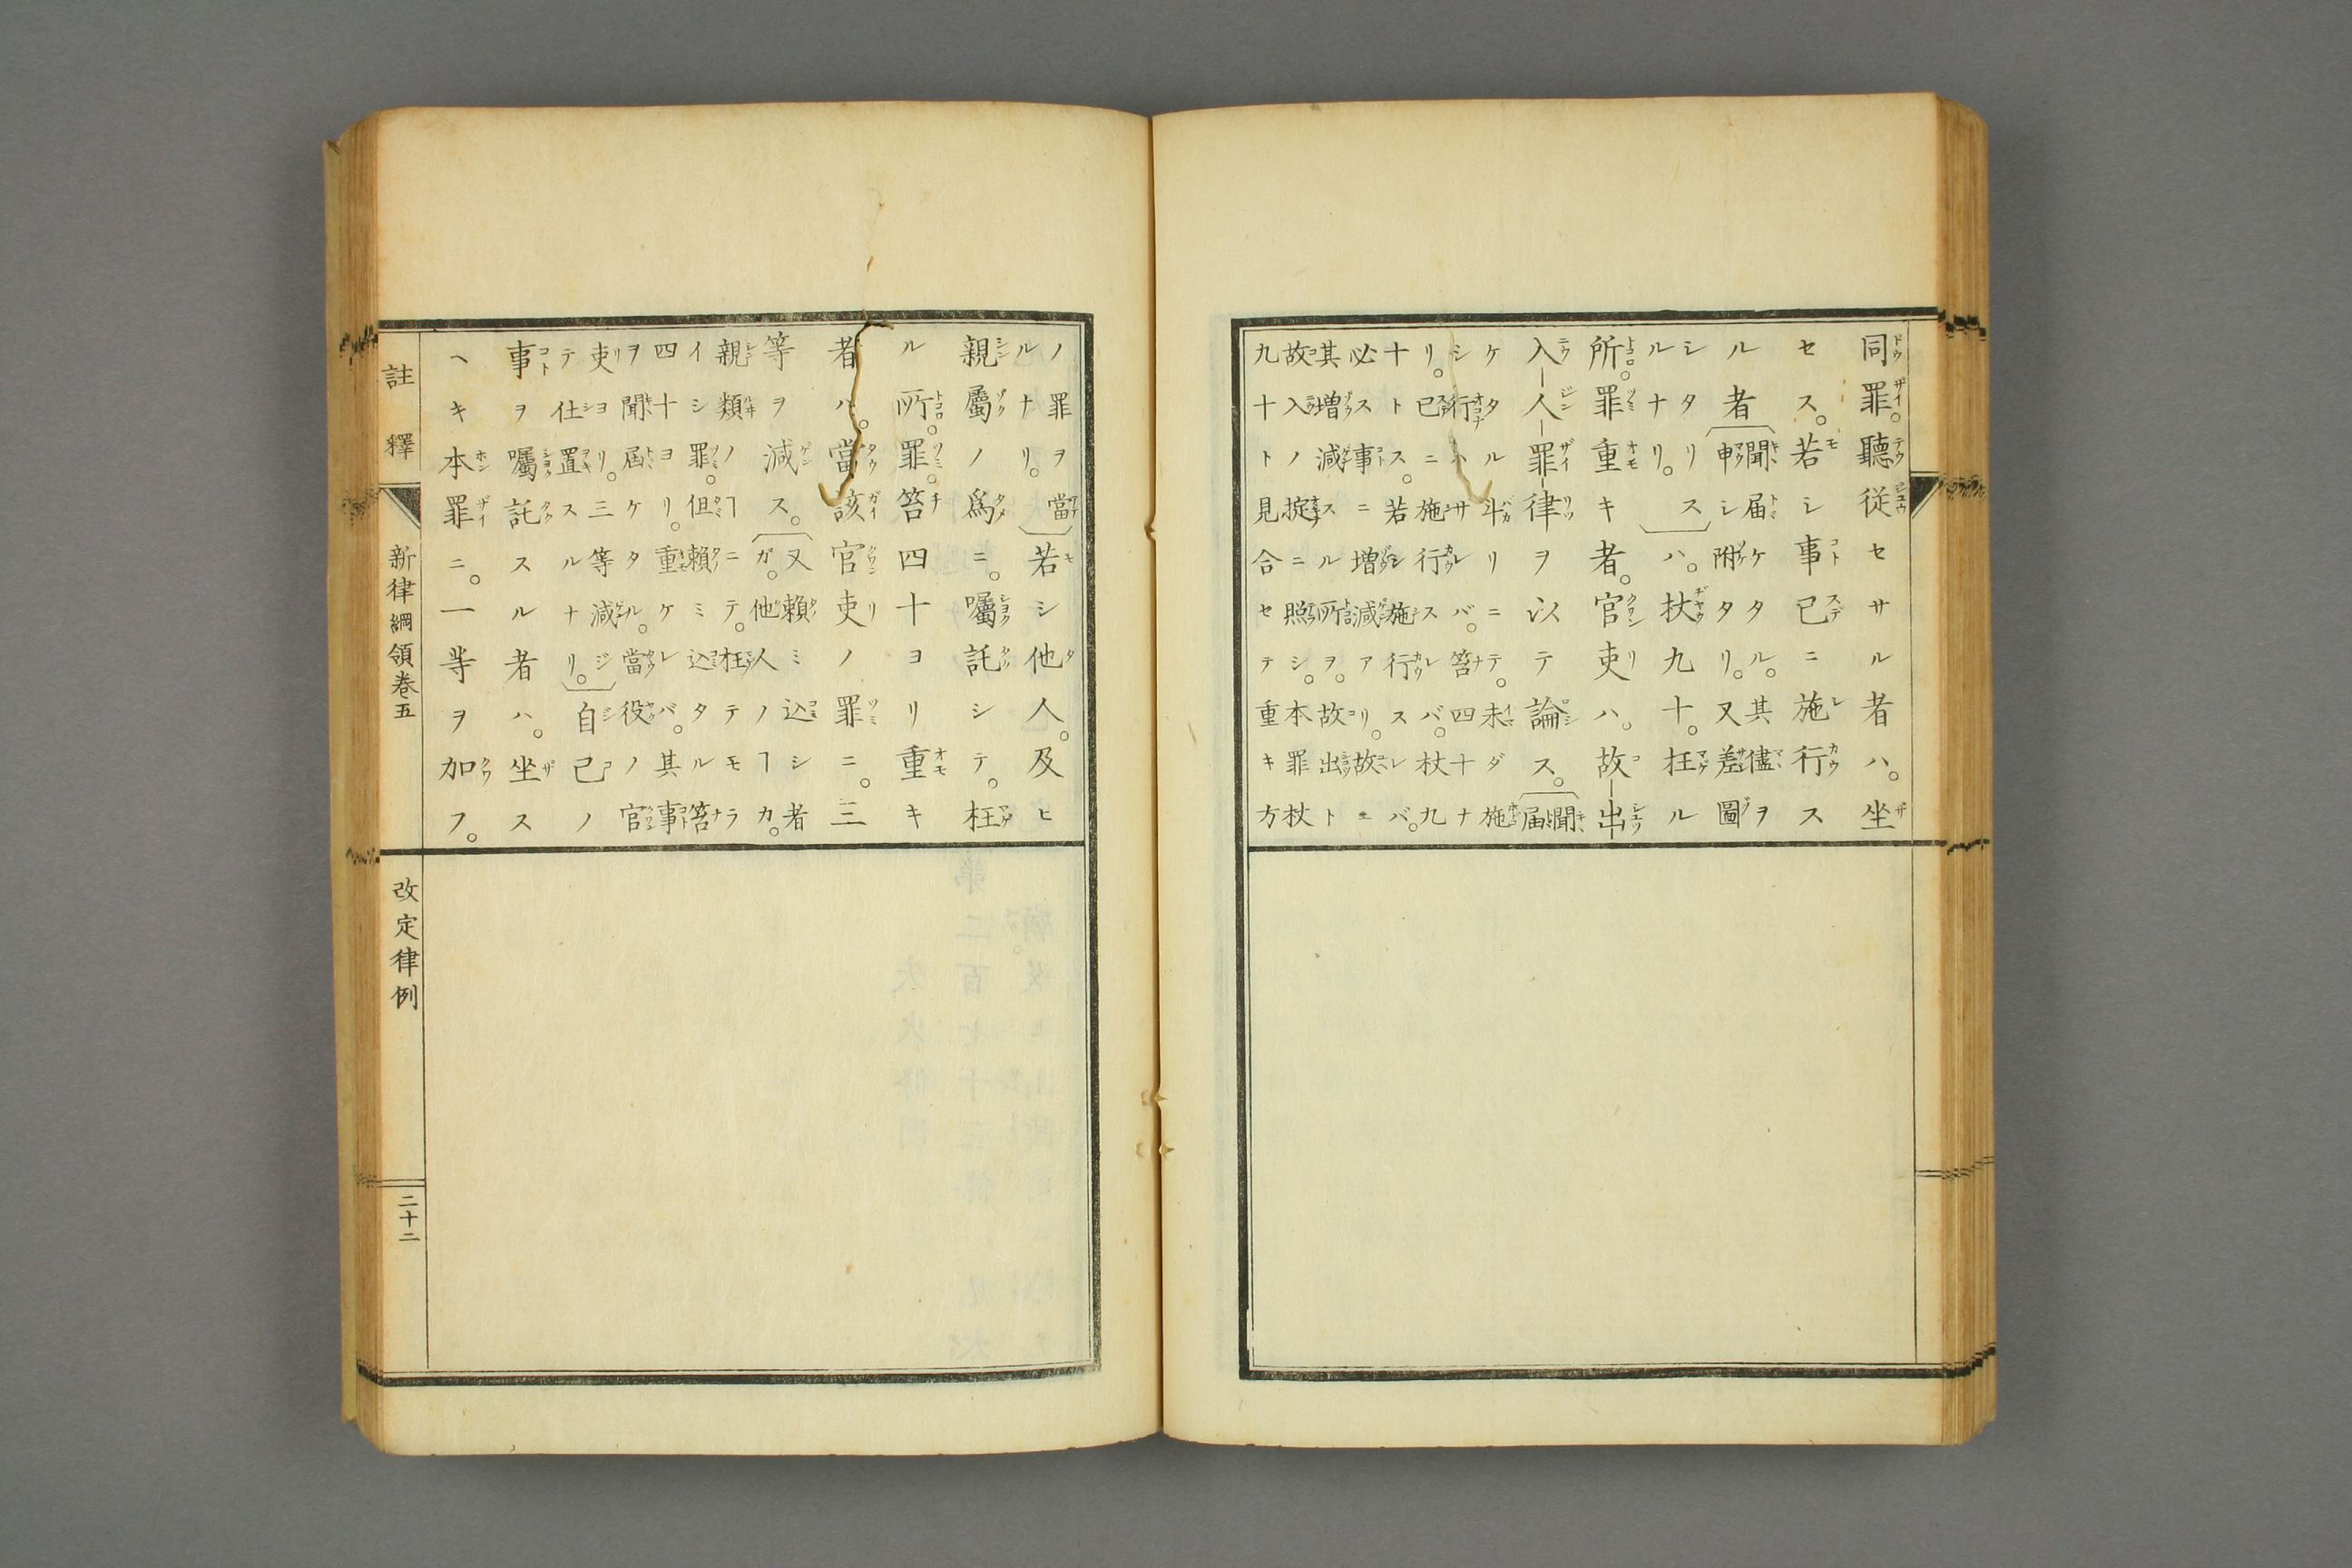 同罪。聽従セサル者ハ。坐
セス。若シ事已ニ施行ス
ル者
聞届ケタル。其儘ヲ
申シ附タリ。又差圖
シタリス
ルナリ。
ハ。杖九十。枉ル
所。罪重キ者。官吏ハ。故出
入人罪律ヲ以テ論ス。
聞
届
ケタル斗リニテ。未ダ施
シ行ハサレバ。笞四十ナ
リ。已ニ施行スレバ。杖九
十トス。若施行スレバ。
必ス事ニ増減アリ。故ニ
其増減スル所ヲ。故出ト
故入ノ掟ニ照シ。本罪杖
九十ト見合セテ重キ方
ノ罪ヲ當
ルナリ。
若シ他人。及ヒ
親屬ノ爲ニ。囑託シテ。枉
ル所。罪。笞四十ヨリ重キ
者ハ。當該官吏ノ罪ニ。三
等ヲ減ス。
又賴ミ込シ者
ガ。他人ノヿカ。
親類ノヿニテ。枉テモラ
イシ罪。但賴ミ込タル笞
四十ヨリ。重ケレバ。其事
ヲ聞届ケタル。當役ノ官
吏ヨリ。三等減ジ
テ仕置スルナリ。
自己ノ
事ヲ囑託スル者ハ。坐ス
ヘキ本罪ニ。一等ヲ加フ。
註釋
新律綱領卷五
改定律例
二十二